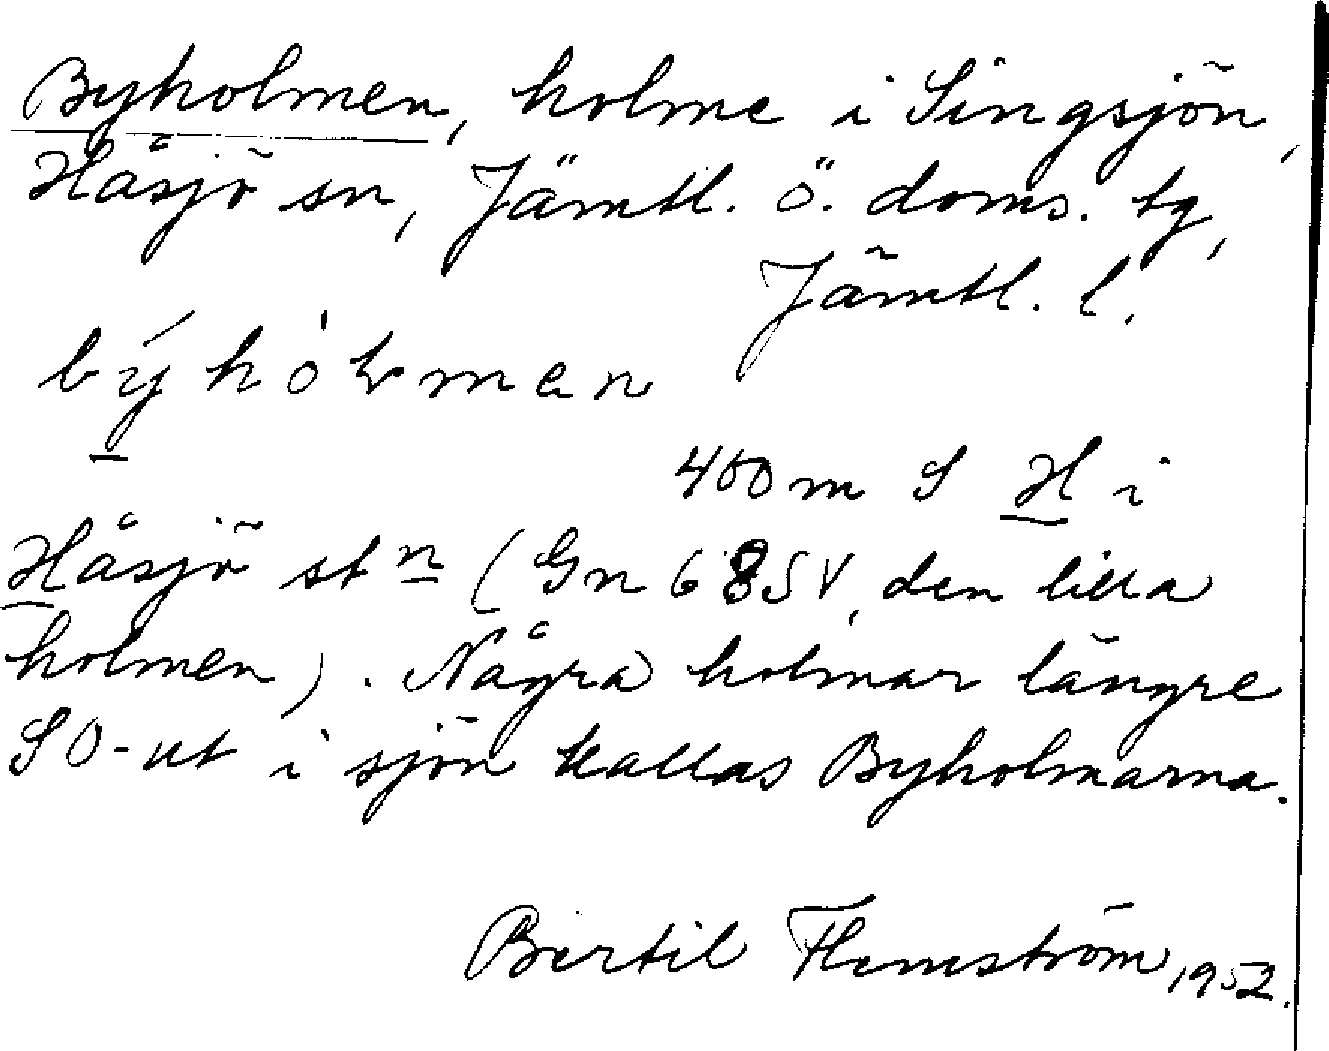 Byholmen, holme i Singsjön,
Håsjö sn, Jämtl. ö. doms. tg,
Jämtl. l.
400 m S H i
Håsjö stn (Gn 68SV, den lilla
holmen). Några holmar längre
SO-ut i sjön kallas Byholmarna.
Bertil Flemström, 1952.